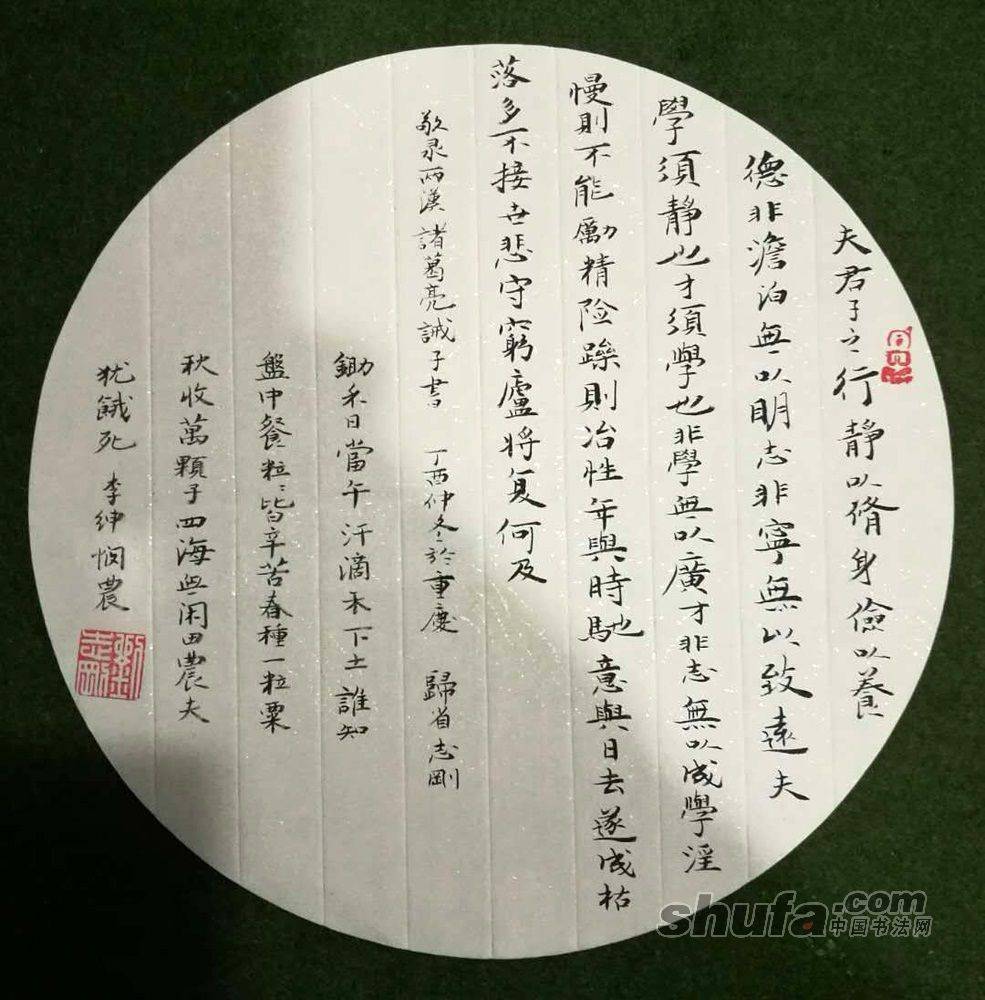 夫君子之行靜以脩身儉以養
德非澹泊無以明志非寧無以致遠夫
學須靜也才須學也非學無以廣才非志無以成學淫
慢則不能勵精险躁則冶性年與時馳意與日去遂成枯
落多不接世悲守窮廬将复何及
敬录兩漢諸葛亮誡子書 丁酉仲冬於重慶 歸省志剛
鋤禾日當午汗滴禾下土誰知
盤中餐粒〻皆辛苦春種一粒粟
秋收萬顆子四海無闲田農夫
犹餓死 李绅悯農
shufa.com
中国书法网